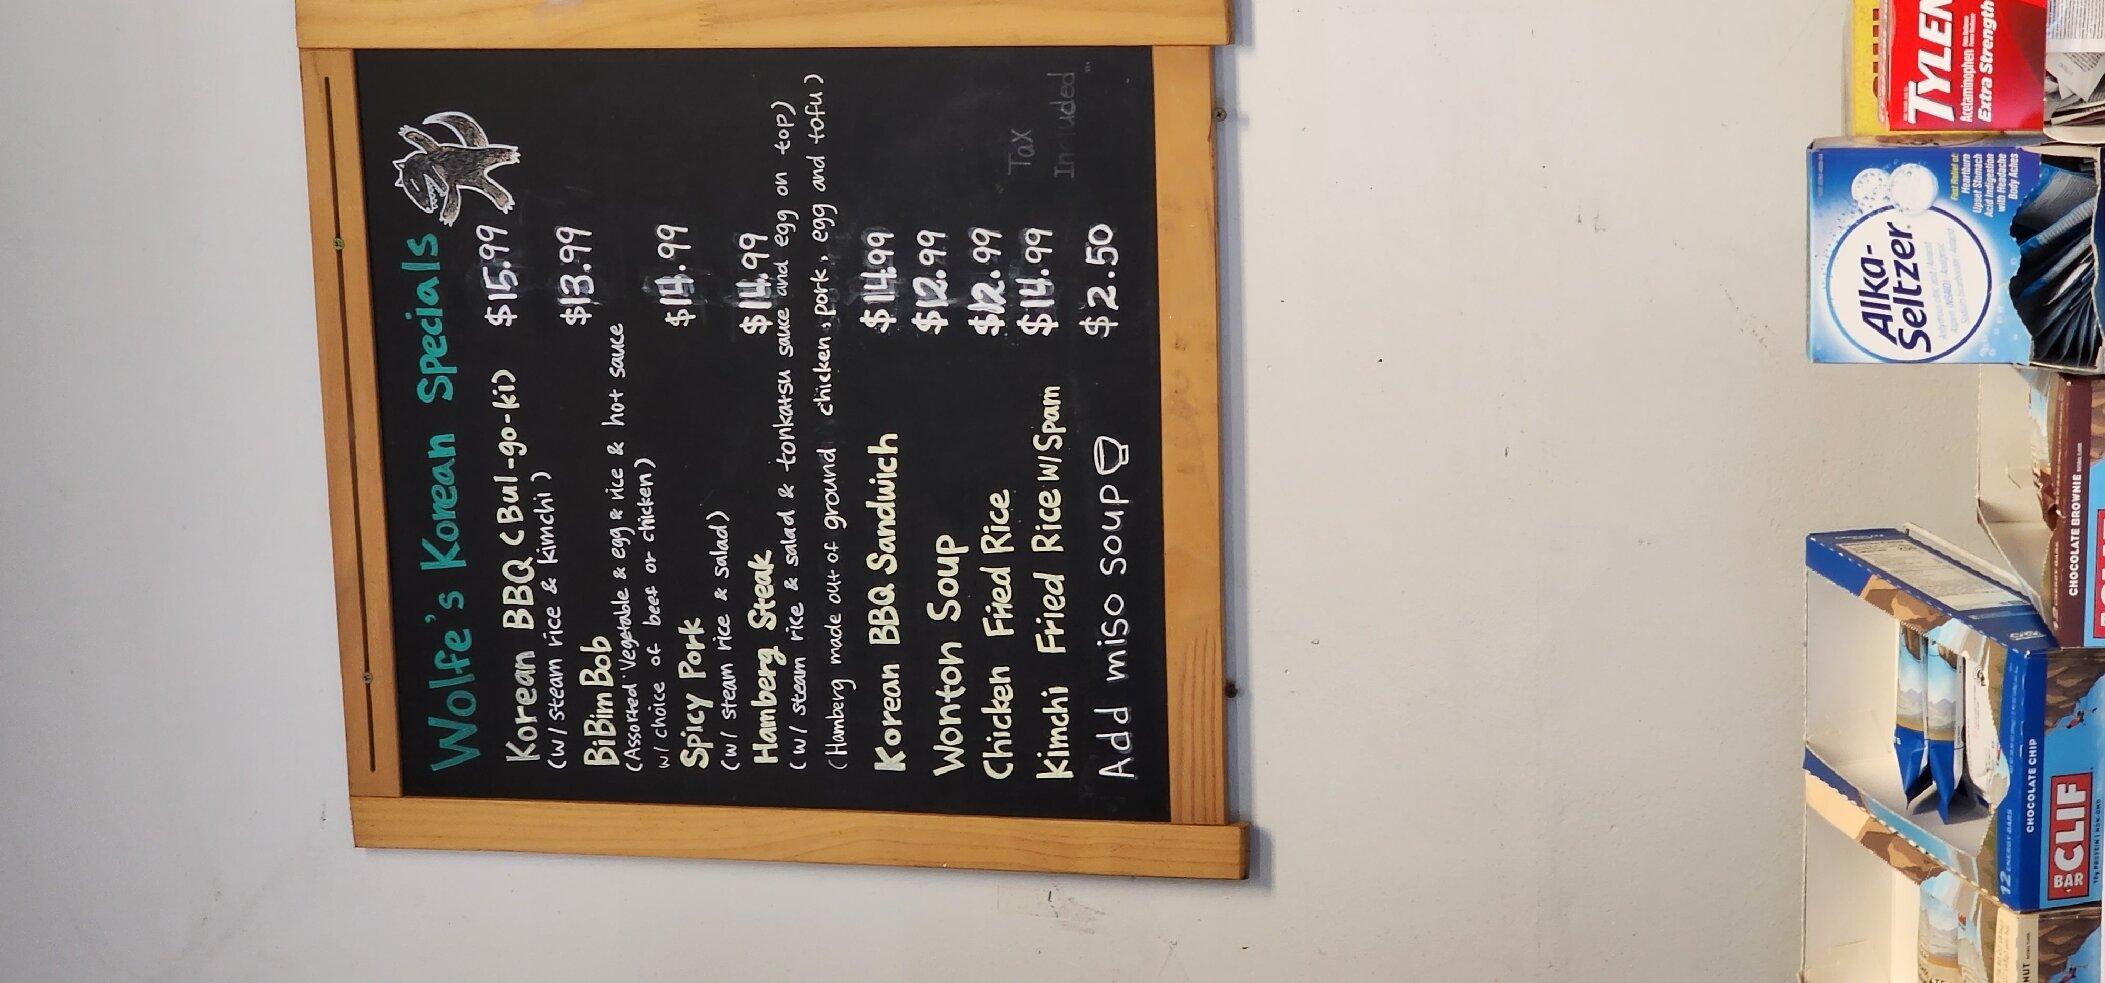 Wolfe's Korean Specials
Korean BBQ (Bul-go-ki) $15.99
(w/ steam rice & kimchi)
BiBimBob $13.99
(Assorted Vegetable & egg & rice & hot sauce
w/ choice of beef or chicken)
Spicy Pork $14.99
(w/ steam rice & salad)
Hamberg Steak $14.99
(w/ steam rice & salad & tonkatsu sauce and egg on top)
(Hamberg made out of ground chicken, pork, egg and tofu)
Korean BBQ Sandwich $14.99
Wonton Soup $12.99
Chicken Fried Rice $12.99
Kimchi Fried Rice w/ Spam $14.99
Add miso soup $2.50
Tax
Included
12 ENERGY BARS
CHOCOLATE CHIP
CLIF
BAR
CHOCOLATE BROWNIE
Alka-
Seltzer
Fast Relief of:
Heartburn
Upset Stomach
Acid Indigestion
with Headache
Body Aches
TYLEN
Acetaminophen
Extra Strength